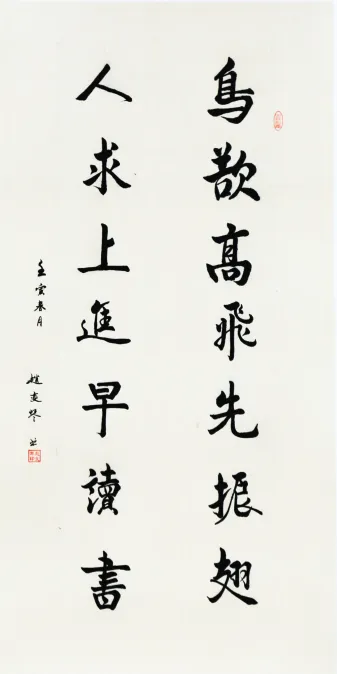 鳥欲高飛先振翅
人求上進早讀書
壬寅春月